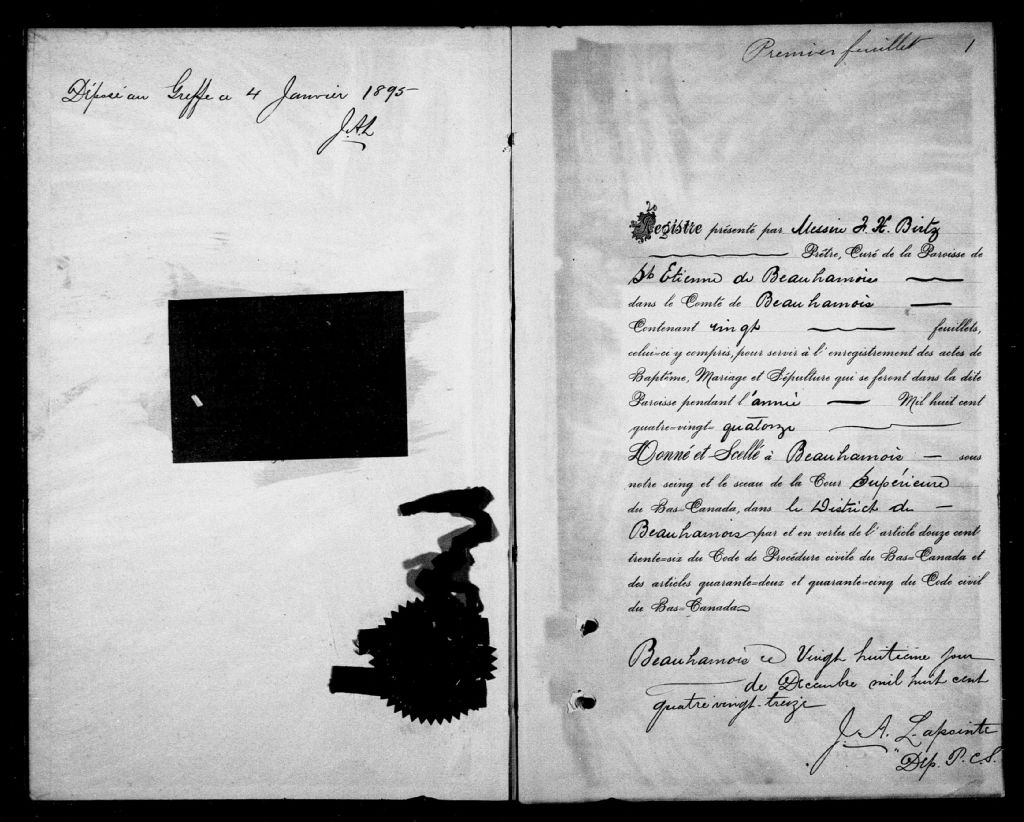 Déposé au Greffe ce 4 Janvier 1895
J.A.L
Premier feuillet 1
20
Registre présenté par Messire F. X. Birtz
Prêtre, Curé de la Paroisse de
St Etienne de Beauharnois
dans le Comté de Beauharnois
Contenant vingt feuillets,
celui-ci y compris, pour servir à l'enregistrement des actes de
Baptême, Mariage et Sépulture qui se feront dans la dite
Paroisse pendant l'année Mil huit cent
quatre-vingt-quatorze
Donné et Scellé à Beauharnois sous
notre seing et le sceau de la Cour Supérieure
du Bas-Canada, dans le District de
Beauharnois par et en vertu de l'article douze cent
trente-six du Code de Procédure civile du Bas-Canada et
des articles quarante-deux et quarante-cinq du Code civil
du Bas-Canada
Beauharnois ce Vingt huitième jour
de Décembre mil huit cent
quatre vingt-treize
J. A. Lapointe
Dép. P.C.S.